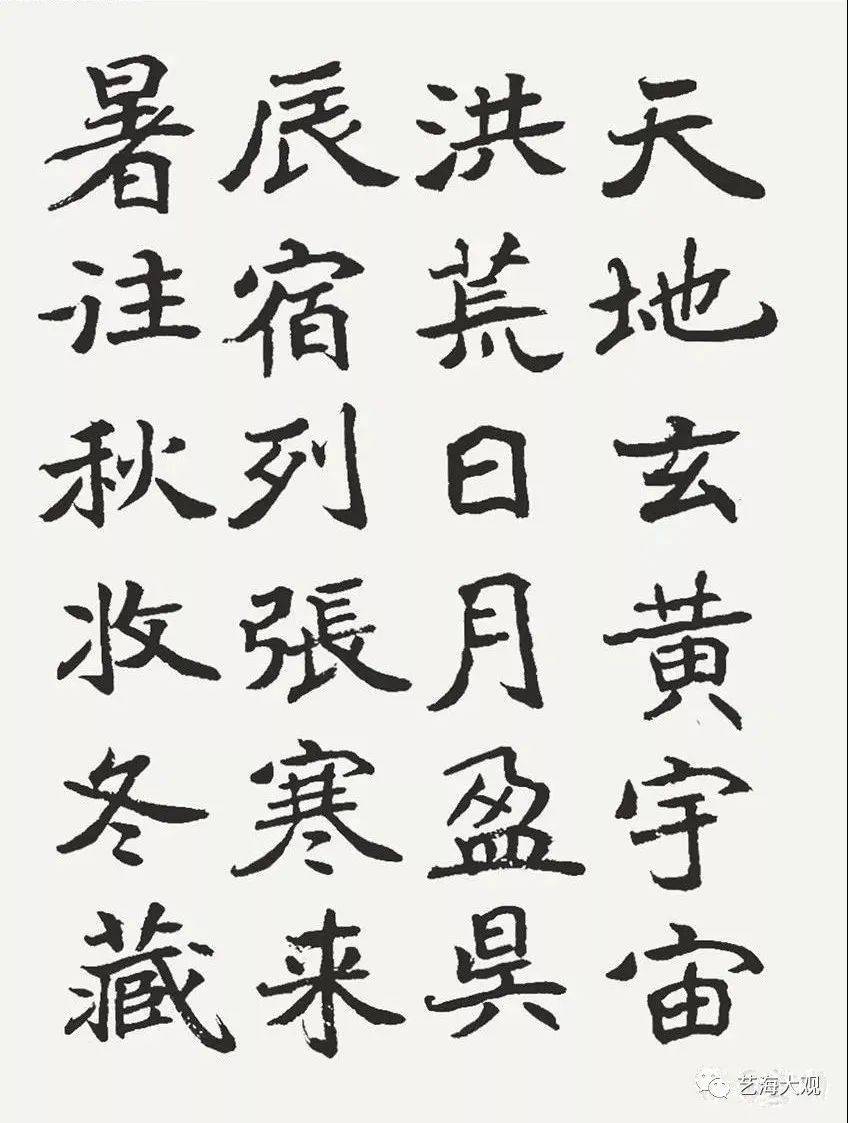 天地玄黄宇宙
洪荒日月盈昃
辰宿列張寒来
暑往秋收冬藏
艺海大观